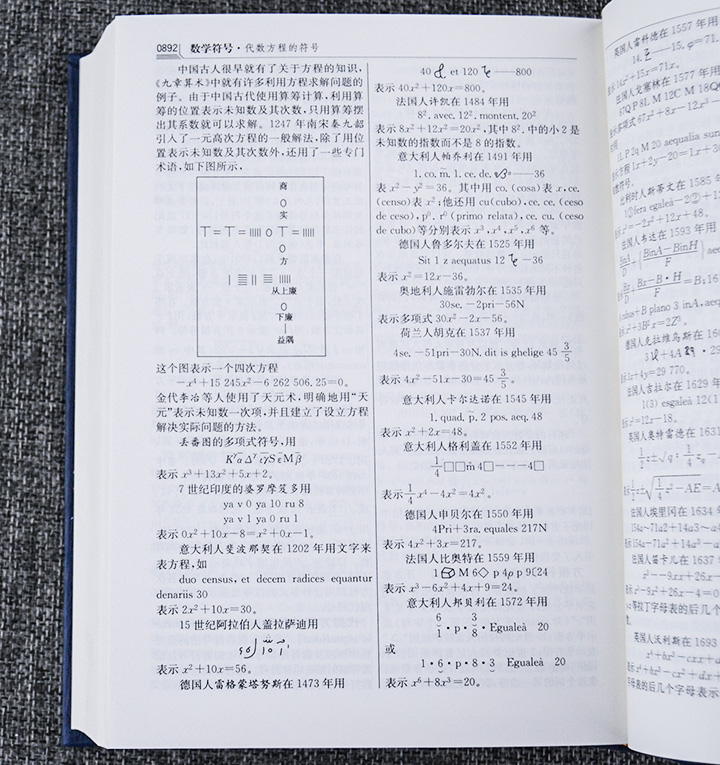 0892 数学符号·代数方程的符号
中国古人很早就有了关于方程的知识,
《九章算术》中就有许多利用方程求解问题的
例子。由于中国古代使用算筹计算,利用算
筹的位置表示未知数及其次数,只用算筹摆
出其系数就可以求解。1247年南宋秦九韶
引入了一元高次方程的一般解法,除了用位
置表示未知数及其次数外,还用了一些专门
术语,如下图所示,
商
○
实
○
方
从上廉
○
下廉
|
益隅
这个图表示一个四次方程
−x⁴+15 245x²−6 262 506.25=0。
金代李冶等人使用了天元术,明确地用“天
元”表示未知数一次项,并且建立了设立方程
解决实际问题的方法。
丢番图的多项式符号,用
表示 x³+13x²+5x+2。
7世纪印度的婆罗摩笈多用
ya v 0 ya 10 ru 8
ya v 1 ya 0 ru 1
表示 0x²+10x−8=x²+0x−1。
意大利人斐波那契在1202年用文字来
表方程,如
duo census, et decem radices equantur
denariis 30
表示 2x²+10x=30。
15世纪阿拉伯人盖拉萨迪用
表示 x²+10x=56。
德国人雷格蒙塔努斯在1473年用
40 et 120 ——800
表示 40x²+120x=800。
法国人许凯在1484年用
8². avec. 12². montent. 20²
表示 8x²+12x²=20x²,其中8².中的小2是
未知数的指数而不是8的指数。
意大利人帕乔利在1491年用
1. co. m̄. 1. ce. de. ——36
表 x²−y²=36。其中用 co. (cosa)表 x,ce.
(censo)表 x²;他还用 cu(cubo),ce. ce. (ceso
de ceso), p⁰. r⁰ (primo relata), ce. cu. (ceso
de cubo)等分别表示 x³,x⁴,x⁵,x⁶ 等。
德国人鲁多尔夫在1525年用
Sit 1 z aequatus 12 −36
表示 x²=12x−36。
奥地利人施雷勃尔在1535年用
30se. −2pri−56N
表示多项式 30x²−2x−56。
荷兰人胡克在1537年用
4se. −51pri−30N. dit is ghelige 45 3/5
表示 4x²−51x−30=45 3/5。
意大利人卡尔达诺在1545年用
1. quad. p̃. 2 pos. aeq. 48
表示 x²+2x=48。
意大利人格利盖在1552年用
1/4□□m̃ 4□----4□
表示 1/4 x⁴−4x²=4x²。
德国人申贝尔在1550年用
4Pri+3ra. equales 217N
表示 4x²+3x=217。
法国人比奥特在1559年用
表示 x³−6x²+4x+9=24。
意大利人邦贝利在1572年用
1·p·8·Egualeà 20
或
1·6·p·8·3 Egualeà 20
表示 x⁶+8x³=20。
英国人雷科德在1557年用
法国人戈塞林在1577年用
比利时人斯蒂文在1585年
法国人韦达在1593年用
德国人克拉维乌斯在16
法国人吉拉尔在1629年
英国人奥特雷德在1631
法国人埃里冈在1634年
法国人笛卡儿在1637年
英国人沃利斯在1693